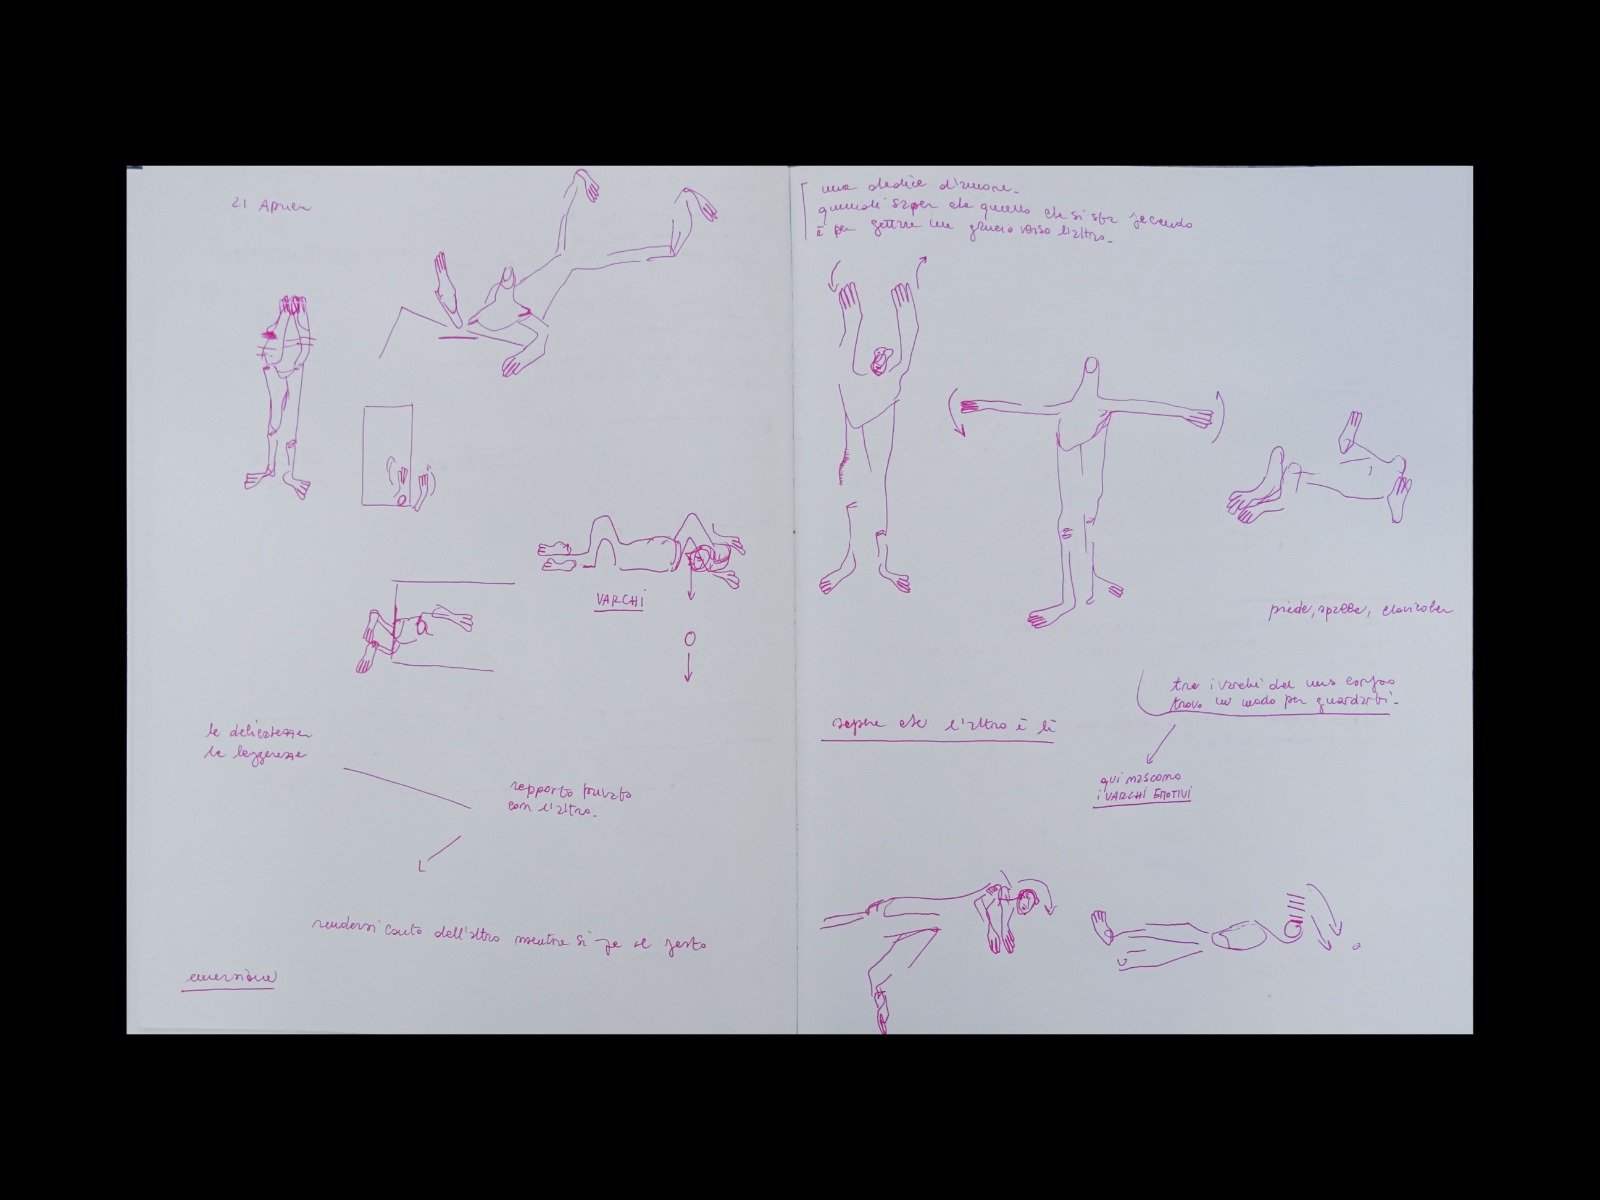 21 Aprile
VARCHI
la delicatezza
la leggerezza
rapporto privato
con l'altro.
rendersi conto dell'altro mentre si fa il gesto
emersione
una dedica d'amore.
quindi saper che quello che si sta facendo
è per gettare un gancio verso l'altro.
piede, spalle, clavicola
tra i varchi del corpo
trovo un modo per guardarti.
sapere che l'altro è lì
qui nascono
i VARCHI EMOTIVI